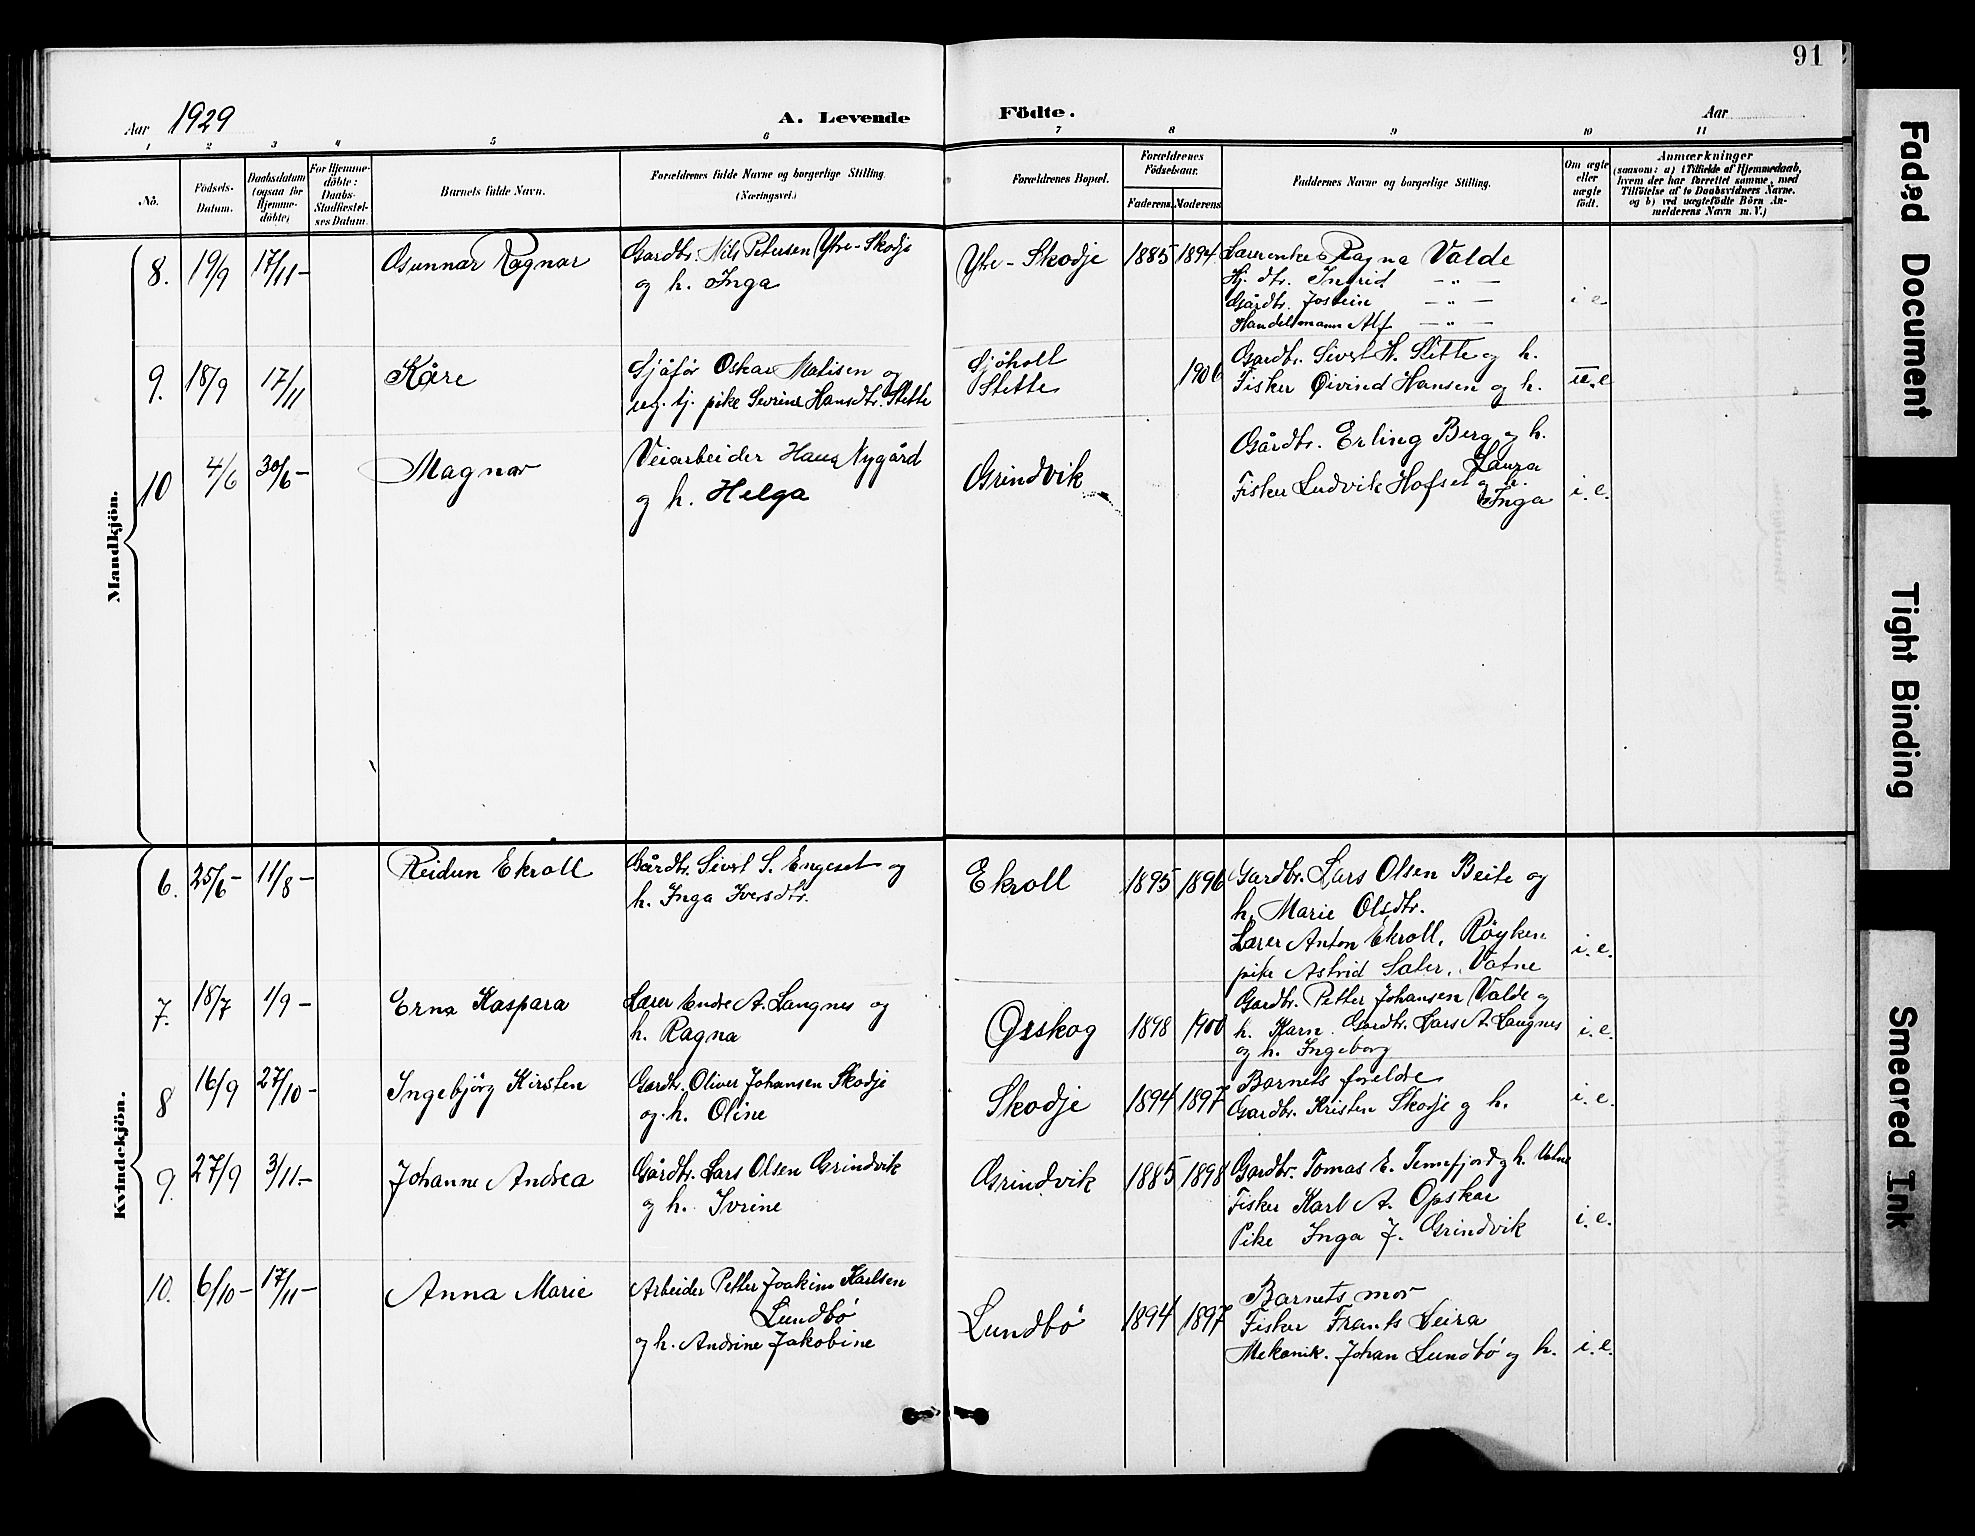 91
Aar 1929
A. Levende Födte.
Aar
1 2 3 4 5 6 7 8 9 10 11
No.
Födsels-
Datum.
Daabsdatum
(ogsaa for
Hjemme-
döbte)
For Hjemme-
döbte:
Daabs-
Stadfæstel-
ses Datum.
Barnets fulde Navn.
Forældrenes fulde Navne og borgerlige Stilling.
(Næringsvei.)
Forældrenes Bopæl.
Forældrenes
Födselsaar.
Faderens. Moderens.
Faddernes Navne og borgerlige Stilling.
Om ægte
eller
uægte
födt.
Anmærkninger
(saasom: a) i Tilfælde af Hjemmedaab,
hvem der har forrettet samme, med
Tilföielse af to Daabsvidners Navne.
og b) ved uægtefödte Börn An-
melderens Navn m. V.)
Mandkjön.
8. 19/9 17/11 –
Gunnar Ragnar
Gardbr. Nils Petersen Ytre-Skodje
og h. Inga
Ytre-Skodje
1885 1894
Ragna Valde
Hj. dtr. Ingrid – " –
Gårdbr. Jostein – " –
Handelsmann Alf – " –
i e
9. 18/9 17/11
Kåre
Sjåfør Oskar Malisen og
ug. tj. pike Sevrine Hansdtr. Stette
Sjöholt
Stette
1906
Gardbr. Sivert H. Stette og h.
Fisker Øivind Hansen og h.
u. e
10 4/6 30/6 –
Magnar
Veiarbeider Hans Nygård
og h. Helga
Grindvik
Gårdbr. Erling Berg og h.
Laura
Fisker Ludvik Hofset og h.
Inga
i. e.
Kvindekjön.
6. 25/6 – 11/8 –
Reidun Ekroll
Gårdbr. Sivert S. Engeset og
h. Inga Iversdtr.
Ekroll
1895 1896
Gardbr. Lars Olsen Beite og
h. Marie Olsdtr.
Lærer Anton Ekroll, Røyken
pike Astrid Sater, Vatne
i. e.
7. 18/7 1/9 –
Erna Kaspara
Lærer Endre A. Langnes og
h. Ragna
Ørskog
1898 1900
Gardbr. Petter Johansen Valde og
h. Karn. Gardbr. Lars A. Langnes
og h. Ingeborg
i. e.
8 16/9 27/10 –
Ingebjörg Kirsten
Gardbr. Oliver Johansen Skodje
og h. Oline
Skodje
1894 1897
Barnets foreldre
Gardbr. Kristen Skodje og h.
i. e.
9. 27/9 3/11. –
Johanne Andrea
Gårdbr. Lars Olsen Grindvik
og h. Ivrine
Grindvik
1885 1898
Gardbr. Tomas E. Tennefjord og h. Vatne
Fisker Karl A. Opskar
Pike Inga J. Grindvik
i. e.
10. 6/10 – 17/11 –
Anna Marie
Arbeider Petter Joakim Karlsen
Lundbö
og h. Andrine Jakobine
Lundbö
1894 1897
Barnets mor
Fisker Frants Leira
Mekanik. Johan Lundbö og h.
i. e.
Faded Document
Tight Binding
Smeared Ink